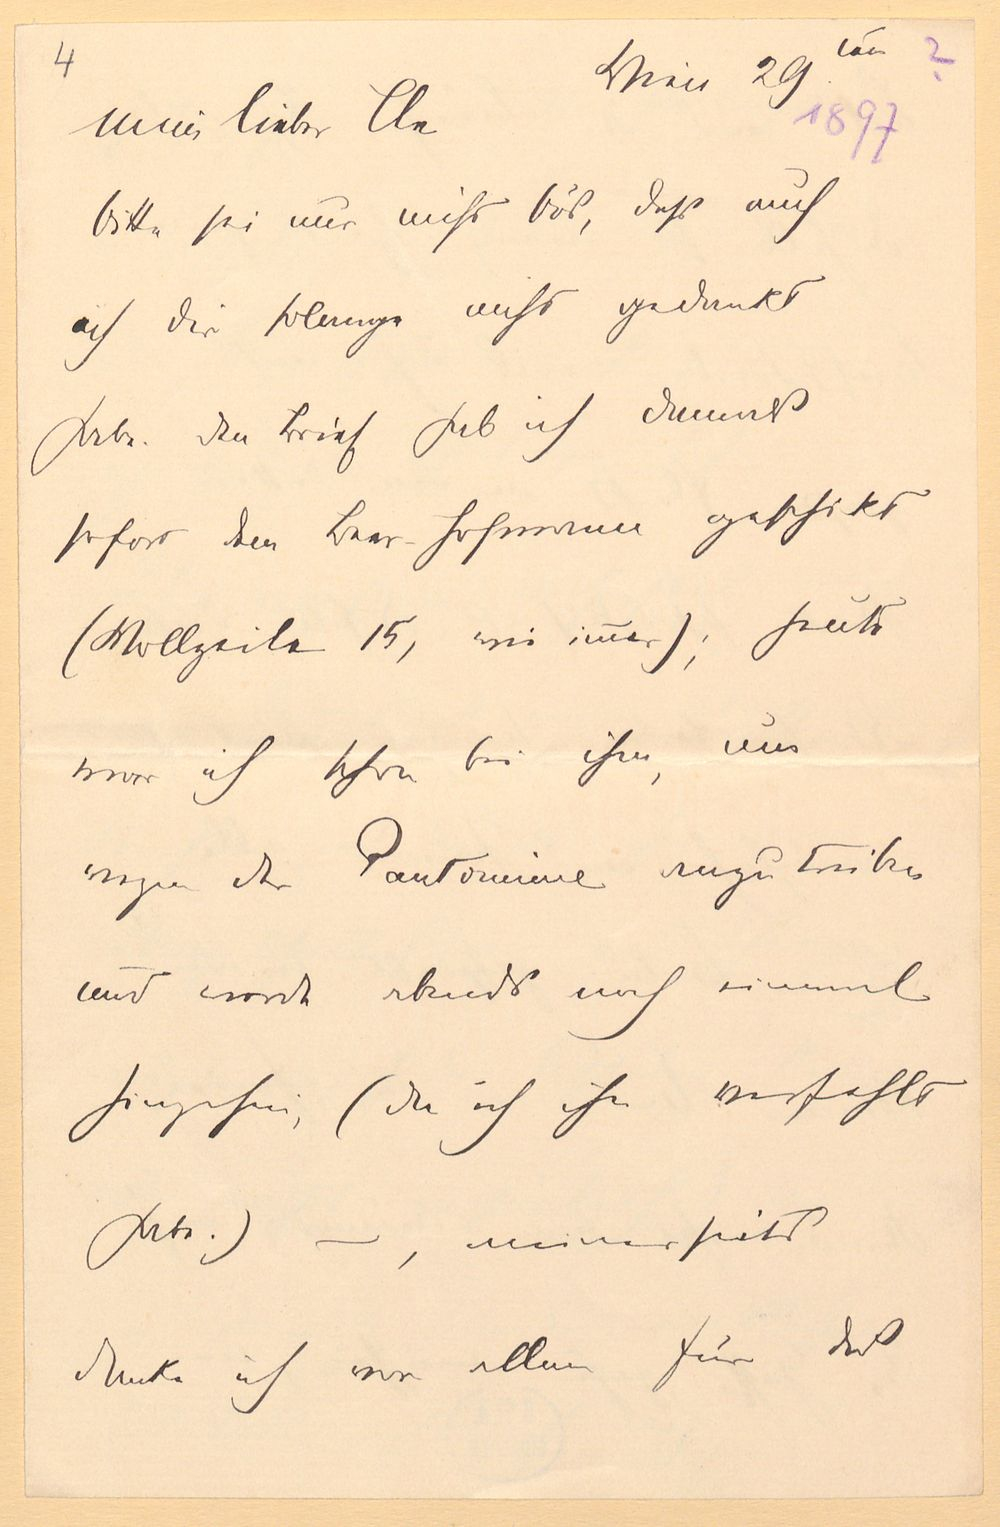 4
Wien 29ten ?
1897
mein lieber
bitte sei nur nicht bös, dass auch
ich dir solange nicht gedankt
habe. den Brief hab ich damals
sofort dem Beer-Hofmann geschikt
(Wollzeile 15, wie im̄er); heute
war ich schon bei ihm, um
wegen der Pantomime anzutreiben
und werde abends noch einmal
hingehen, (da ich ihn verfehlt
habe.) —, meinerseits
danke ich vor allem für das